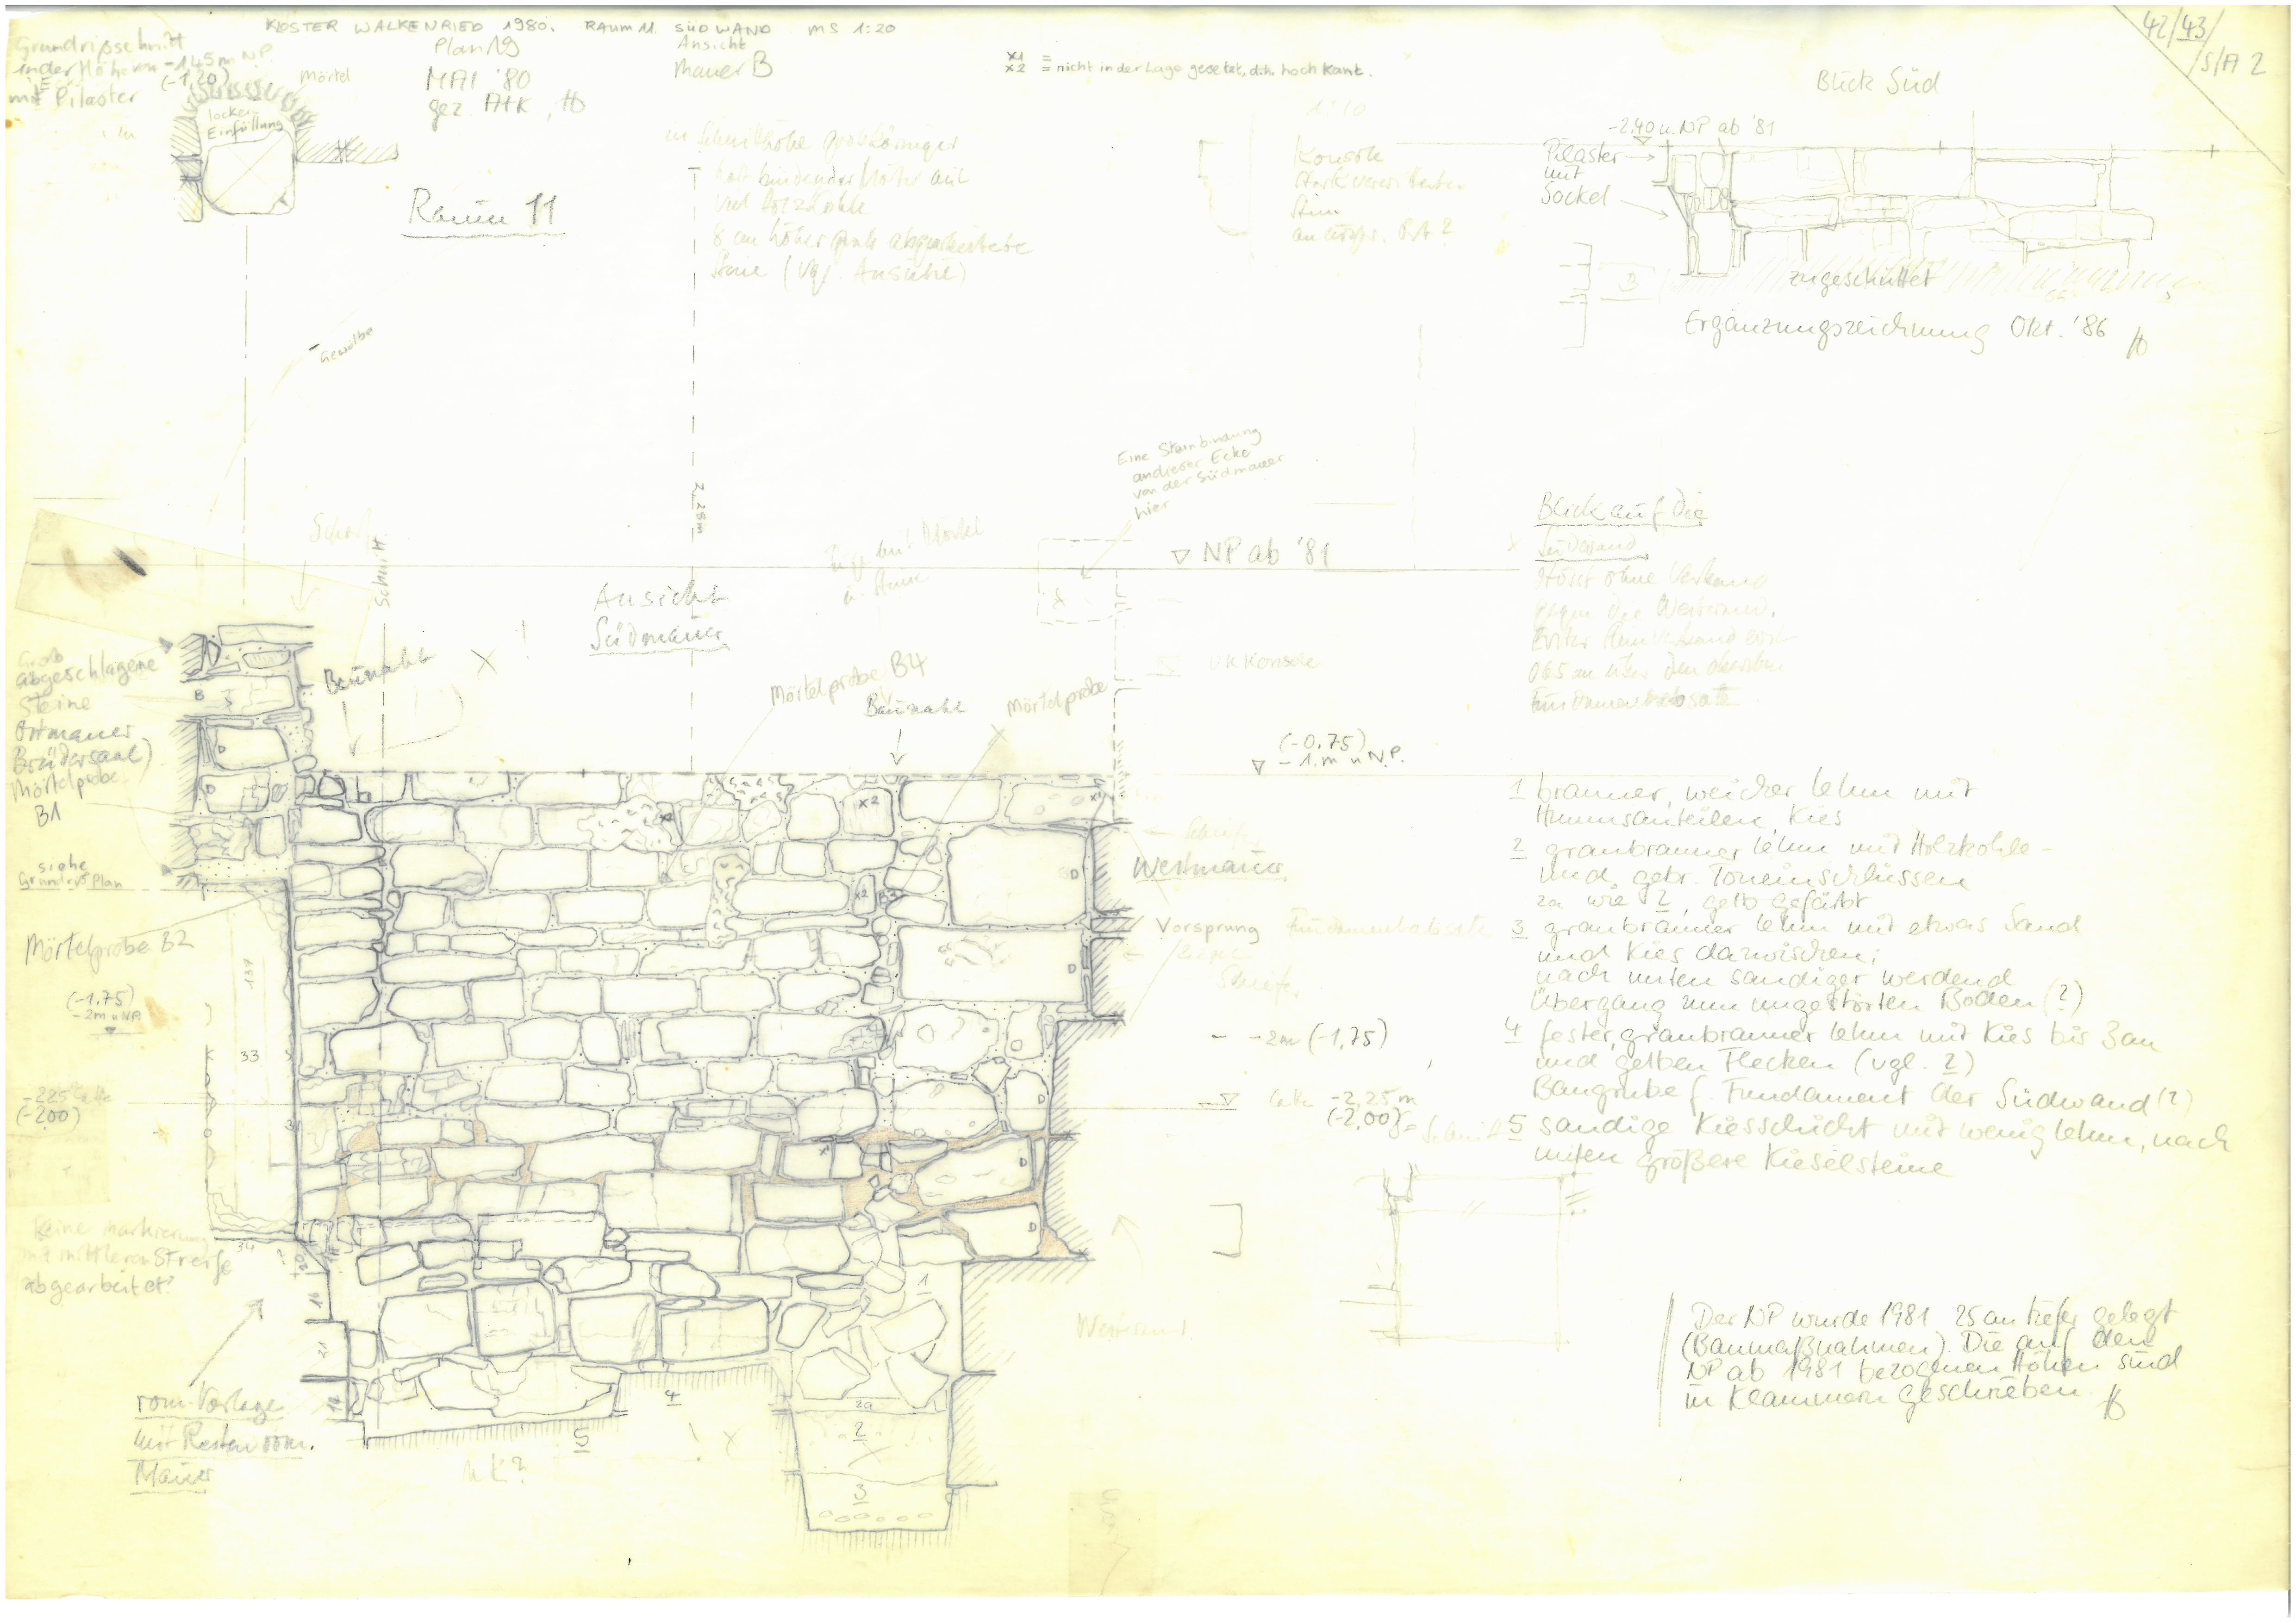 KLOSTER WALKENRIED 1980. RAUM 11. SÜDWAND MS 1:20
Plan 19
Ansicht
Mauer B
MAI '80
gez. AHK, Ho
Grundrißschnitt
in der Höhe von -1,45m NP.
(-1,20)
mit Pilaster
Mörtel
locker
Einfüllung
Raum 11
x1
x2 = nicht in der Lage gesetzt, d.h. hoch Kant.
42/43/
/S/A 2
in Schnitthöhe grobkörniger
hart bindender Mörtel mit
viel Holzkohle
8 cm höher grob abgearbeitete
Steine (vgl. Ansicht)
1:10
Konsole
stark verwitterter
Blick Süd
-2,40 u. NP ab '81
Pilaster
mit
Sockel
zugeschüttet
Ergänzungszeichnung Okt. '86
Gewölbe
2,28m
Eine Steinbindung
an dieser Ecke
von der Südmauer
hier
Schnitt
NP ab '81
Ansicht
Südmauer
Baunaht
Mörtelprobe B4
Baunaht
Mörtelprobe
UK Konsole
(-0,75)
-1.m u N.P.
Blick auf die
Südwand
stösst ohne Verband
gegen die Westwand.
Grob
abgeschlagene
Steine
Ostmauer
Brüdersaal)
Mörtelprobe
B1
siehe
Grundriß Plan
Mörtelprobe B2
(-1,75)
-2m u NP.
137
33
-2,25
(-2,00)
B
D
D
x2
x2
B3
D
D
D
D
Westmauer
Vorsprung Fundamentabsatz
-2m (-1,75)
-2,25 m
(-2,00)
1 brauner, weicher Lehm mit
Humusanteilen, Kies
2 graubrauner Lehm mit Holzkohle-
und gebr. Toneinschlüssen
2a wie 2, gelb gefärbt
3 graubrauner Lehm mit etwas Sand
und Kies dazwischen;
nach unten sandiger werdend
Übergang zum ungestörten Boden (?)
4 fester, graubrauner Lehm mit Kies bis 3cm
und gelben Flecken (vgl. 2)
Baugrube f. Fundament der Südwand (?)
5 sandige Kiesschicht mit wenig Lehm, nach
unten größere Kieselsteine
Keine Markierung
mittleren Streife
abgearbeitet?
34
16
21
rom. Vorlage
mit Resten rom.
Mauer
1
4
5
2a
2
3
UK?
Der NP wurde 1981 25cm tiefer gelegt
(Baumaßnahmen). Die auf den
NP ab 1981 bezogenen Höhen sind
in Klammern geschrieben.